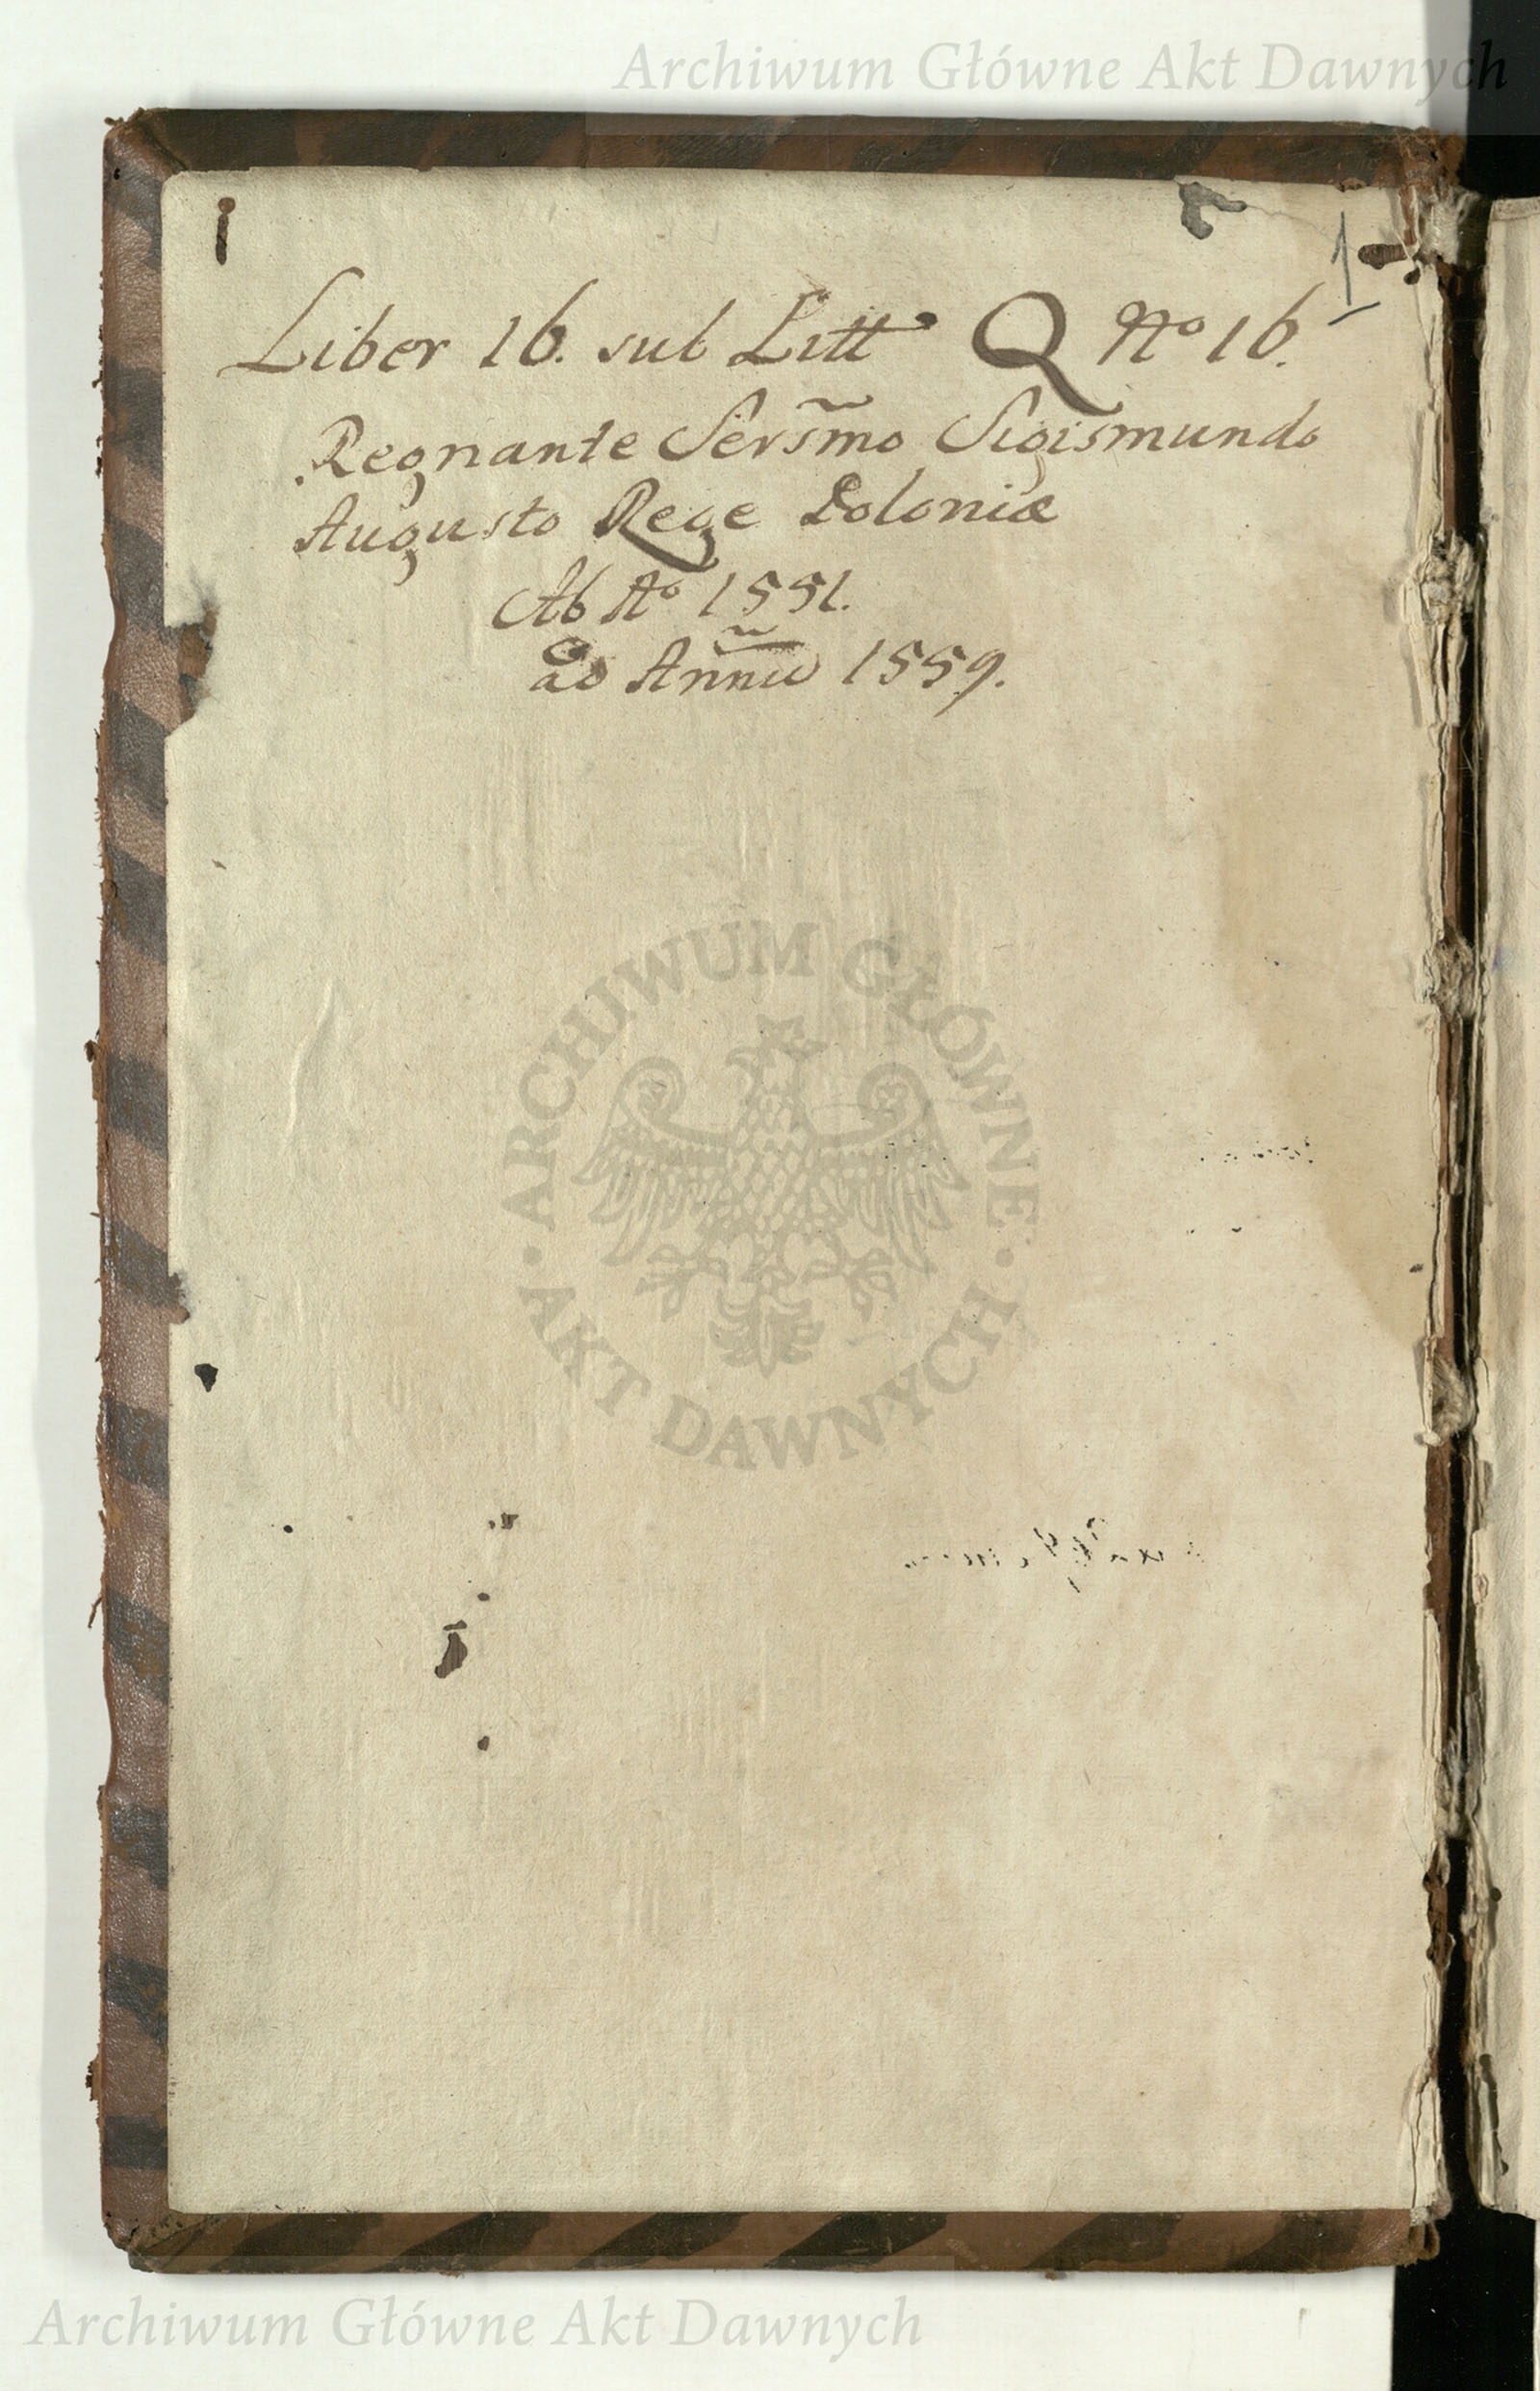 Archiwum Główne Akt Dawnych
1
Liber 16. sub Litt Q No 16.
Regnante Sersm̃o Sigismundo
Augusto Rege Poloniæ
Ab Ao 1551.
ad Annũ 1559.
ARCHIWUM GŁÓWNE
AKT DAWNYCH
Archiwum Główne Akt Dawnych